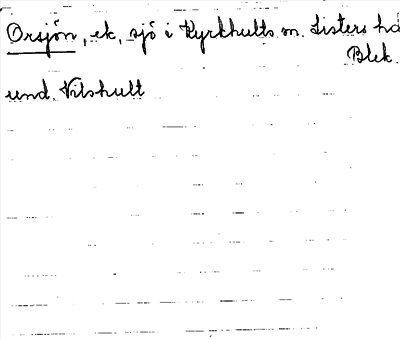 Orsjön, ek, sjö i Kyrkhults sn. Listers hd
Blek.
und. Vilshult